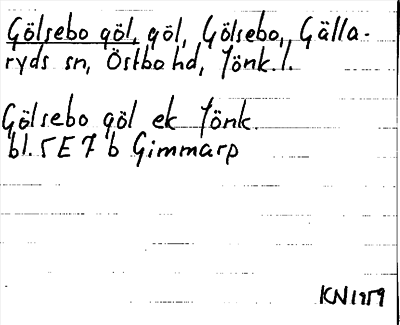 Gölsebo göl, göl, Gölsebo, Gälla-
ryds sn, Östbo hd, Jönk.l.
Gölsebo göl ek Jönk.
bl. 5 E 7 b Gimmarp
KN1959